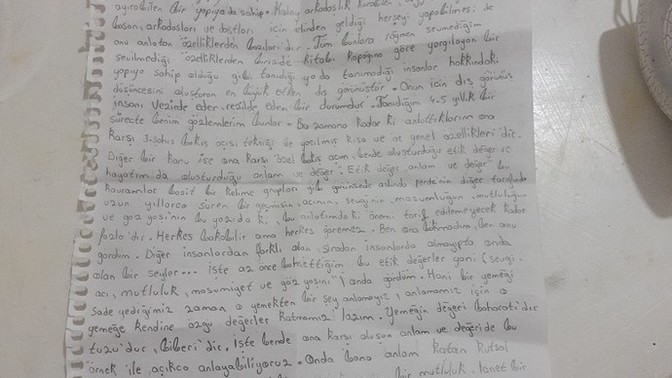 ayırabilen bir yapıya da sahip. Kolay arkadaşlık kurabilen,
insan, arkadaşları ve dostları için elinden geldiği herşeyi yapabilmesi de
onu anlatan özelliklerden bazılarıdır. Tüm bunlara rağmen sevmediğim
sevilmediği özelliklerden birisi de kitabı kapağına göre yargılayan bir
yapıya sahip olduğu gibi tanıdığı ya da tanımadığı insanlar hakkındaki
düşüncesini oluşturan en büyük etken dış görünüştür. Onun için dış görünüş
insanı vezir de eder rezil de eden bir durumdur. Tanıdığım 4.5 yıllık bir
süreçte benim gözlemlerim bunlar. Bu zamana kadar ki anlattıklarım ona
karşı 3.şahıs bakış açısı tekniği ile yazılmış kısa ve öz genel özellikleri'dir.
Diğer bir konu ise ona karşı özel bakış açım, bende oluşturduğu etik değer ve
hayatım da oluşturduğu anlam ve değer. Etik değer anlam ve değer bu
kavramlar basit bir kelime grupları gibi görünsede aslında perde'nin diğer tarafında
uzun yıllarca süren bir geçmişin, acının, sevginin, masumluğun, mutluluğun
ve göz yaşı'nın bu yazıda ki, bu anlatımda ki önemi tarif edilemeyecek kadar
fazla'dır. Herkes bakabilir ama herkes göremez. Ben ona bakmadım, ben onu
gördüm. Diğer insanlardan farklı olan, sıradan insanlarda olmayıpta onda
olan bir şeyler... işte az önce bahsettiğim bu etik değerler yani (sevgi,
acı, mutluluk, masumiyet ve göz yaşını") onda gördüm. Hani bir yemeği
sade yediğimiz zaman o yemekten bir şey anlamayız, anlamamız için o
yemeğe kendine özgü değerler katmamız lazım. Yemeğin değeri baharatı'dır
tuzu'dur, biberi'dir. İşte bende ona karşı oluşan anlam ve değeri de bu
örnek ile açıkca anlayabiliyoruz. Onda bana anlam katan kutsal
bir mutluluk. lanet bir